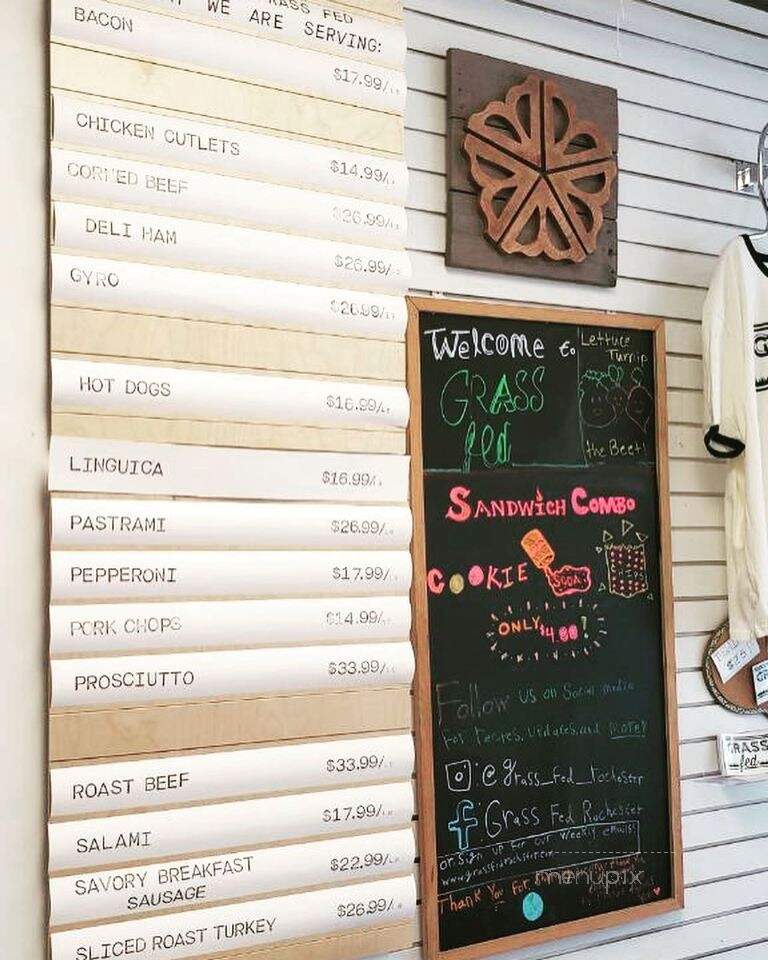 GRASS FED
WE ARE SERVING:
BACON
$17.99/LB
CHICKEN CUTLETS
$14.99/LB
CORNED BEEF
$26.99/LB
DELI HAM
$26.99/LB
GYRO
$26.99/LB
HOT DOGS
$16.99/LB
LINGUICA
$16.99/LB
PASTRAMI
$26.99/LB
PEPPERONI
$17.99/LB
PORK CHOPS
$14.99/LB
PROSCIUTTO
$33.99/LB
ROAST BEEF
$33.99/LB
SALAMI
$17.99/LB
SAVORY BREAKFAST
SAUSAGE
$22.99/LB
SLICED ROAST TURKEY
$26.99/LB
Welcome to
GRASS
fed
Lettuce
Turnip
the Beet!
SANDWICH COMBO
COOKIE
SODA
CHIPS
ONLY $4.00!
Follow us on Social media
For recipes, updates, and more!
@grass_fed_rochester
Grass Fed Rochester
or sign up for our weekly emails!
www.grassfedrochester.com
Thank You For
menupix
$25
GRASS
fed